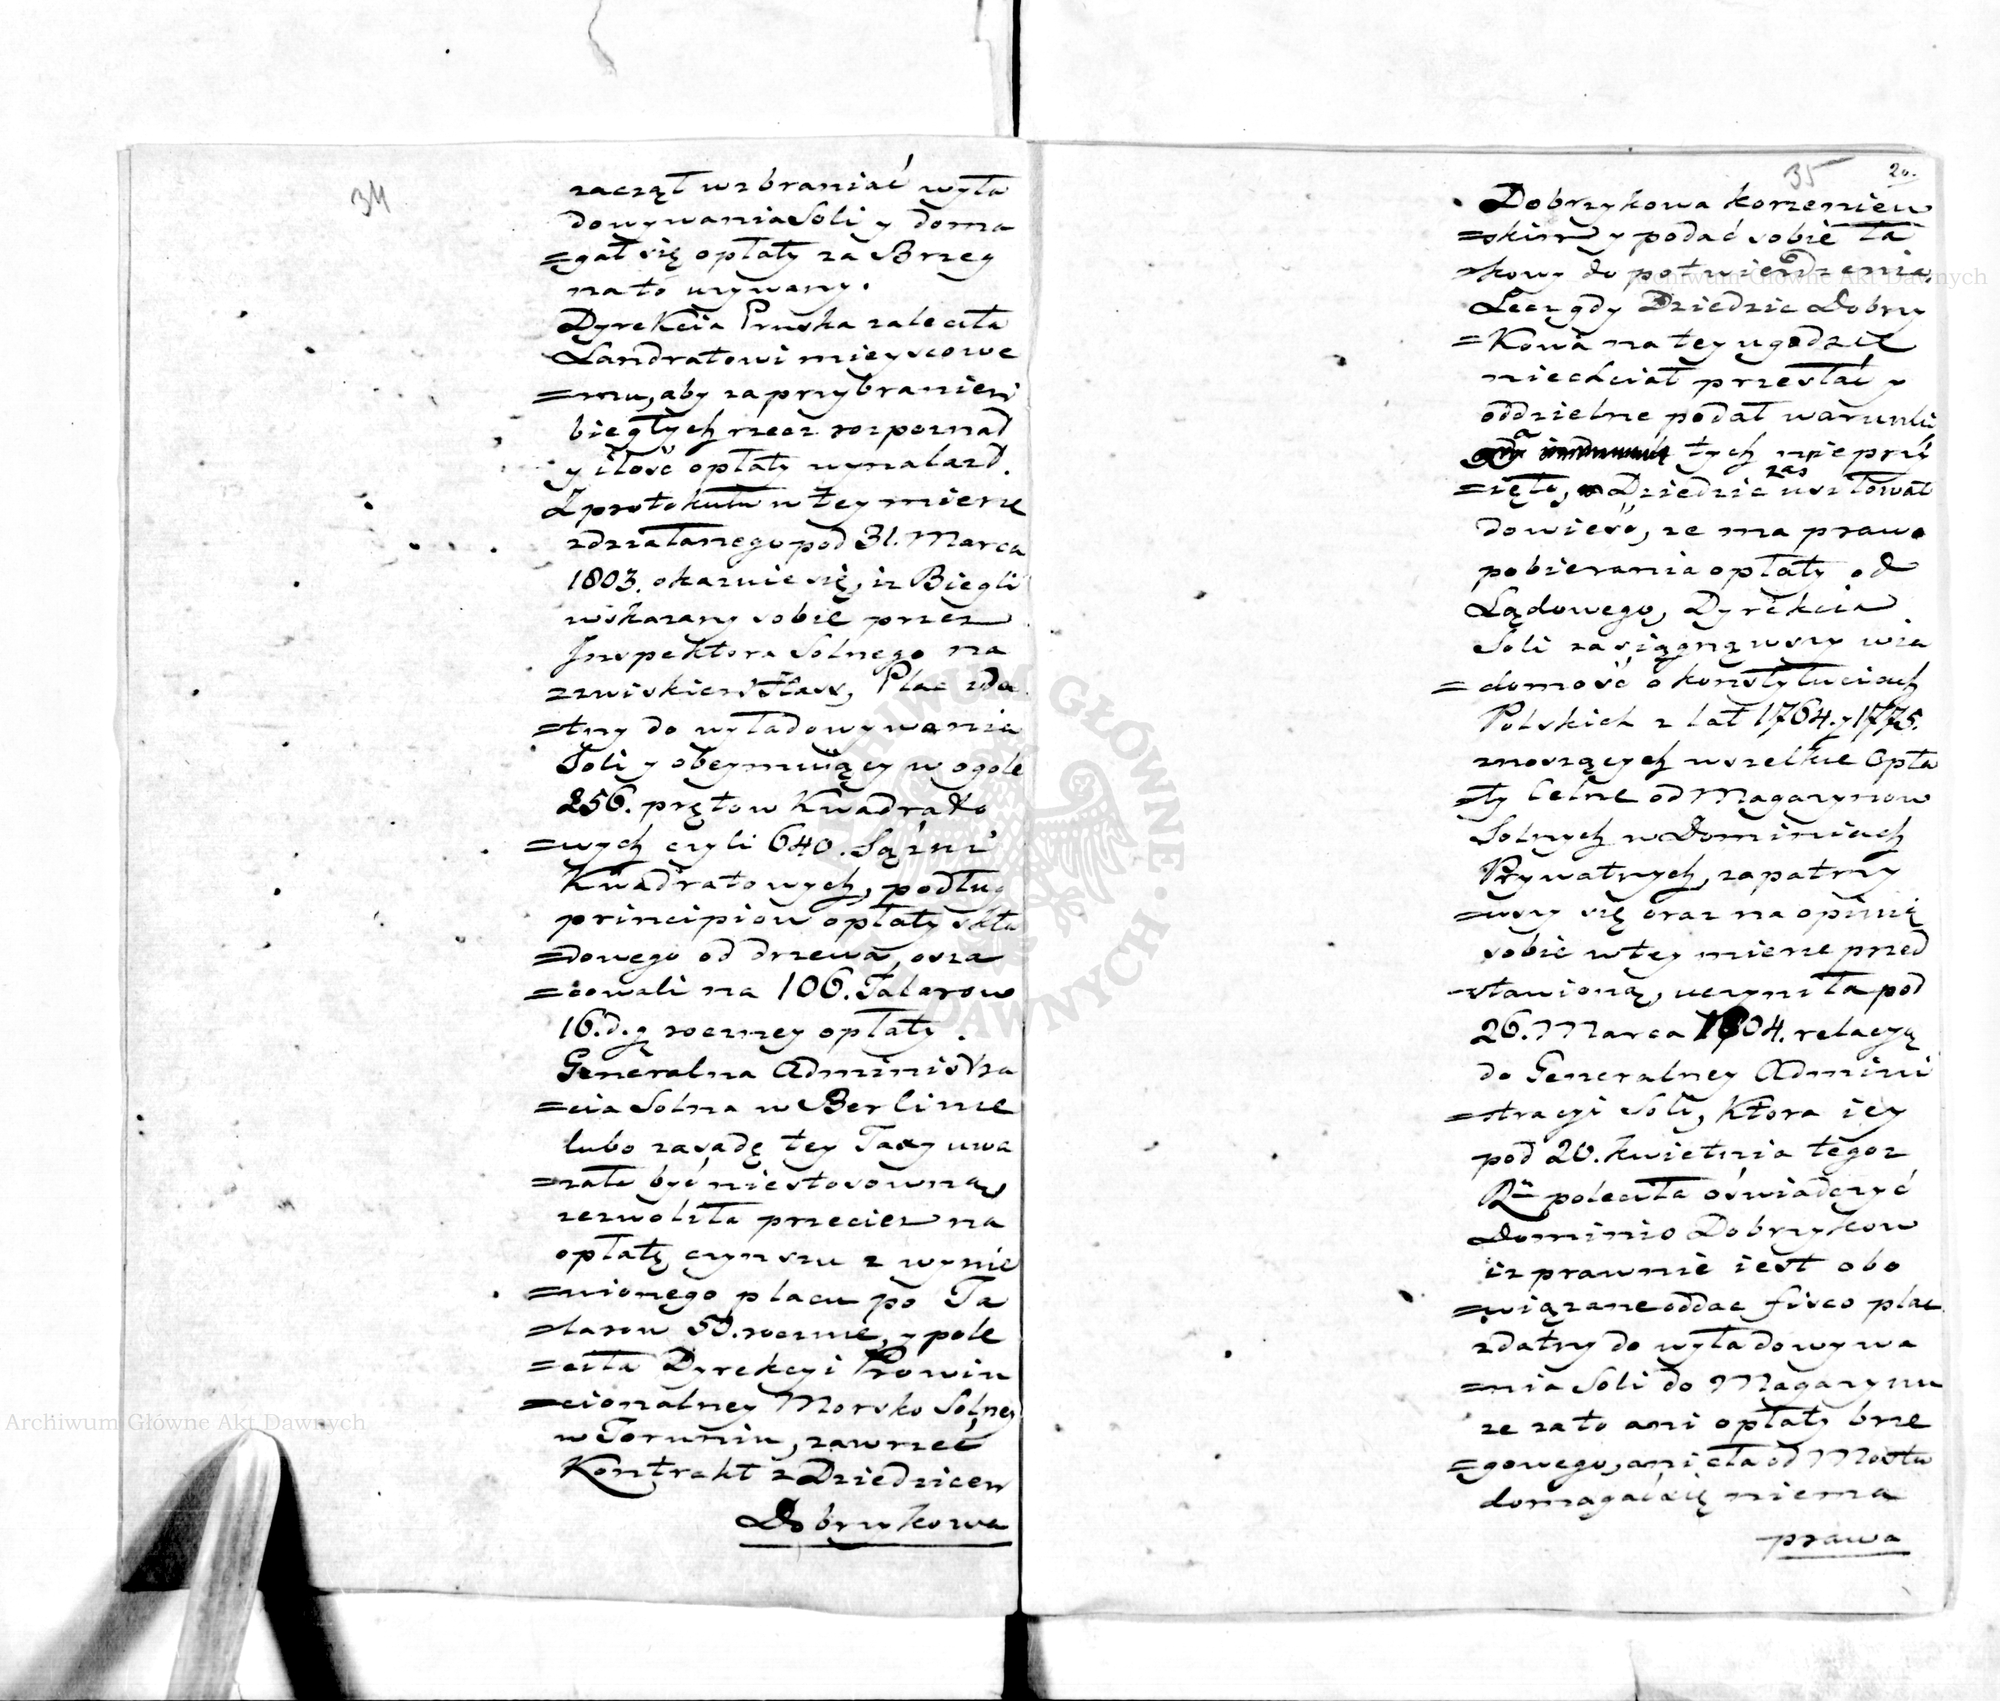 34
zaczął wzbraniać wyła
dowywania Soli y doma
=gał się opłaty za Brzeg
na to używany.
Dyrekcia Pruska zaleciła
Landratowi mieyscowe
=mu, aby za przybraniem
biegłych rzecz rozpoznał
y ilość opłaty wynalazł.
Z protokułu w tey mierze
zdziałanego pod 31. Marca
1803. okazuie się, iż Biegli
wskazany sobie przez
Inspektora Solnego na
zwiskiem Stass, Plac zda
=tny do wyładowywania
Soli y obeymuiący w ogole
256. prętow Kwadrato
=wych czyli 640. Sążni
Kwadratowych, podług
principiow opłaty skła
=dowego od drzewa, osza
=cowali na 106. Talarow
16. d. g. roczney opłaty.
Generalna Administra
=cia Solna w Berlinie
lubo zasadę tey Taxy uwa
=żała być niestosowną,
zezwoliła przecież na
opłatę czynszu z wymie
=nionego placu po Ta
=larow 50. rocznie, y pole
=ciła Dyrekcyi Prowin
=cionalney Morsko Solney
w Toruniu, zawrzeć
Kontrakt z Dziedzicem
Dobrzykowa
35
20.
Dobrzykowa Korzeniew
=skim y podać sobie ta
=kowy do potwierdzenia.
Lecz gdy Dziedzic Dobrzy
=kowa na tey ugodzie
niechciał przestać y
oddzielne podał warunki
a tych nie przy
=ięto, Dziedzic zaś usiłował
dowieść, że ma prawo
pobierania opłaty od
Lądowego, Dyrekcia
Soli zasiągnąwszy wia
=domość o konstytuciach
Polskich z lat 1764. y 1775.
znoszących wszelkie Opła
=ty Celne od Magazynow
Solnych w Dominiach
Prywatnych, zapatrzy
=wszy się oraz na opinię
sobie w tey mierze przed
=stawioną, uczyniła pod
26. Marca 1804. relacyą
do Generalney Admini
=stracyi Soli, która iey
pod 20. Kwietnia tegoż
Rᵘ poleciła oświadczyć
Dominio Dobrzykow
iż prawnie iest obo
=wiązane oddać fisco plac
zdatny do wyładowywa
=nia Soli do Magazynu
że za to ani opłaty brze
=gowego, ani cła od Mostu
domagać się niema
prawa
Archiwum Główne Akt Dawnych
Archiwum Główne Akt Dawnych
ARCHIWUM GŁÓWNE AKT DAWNYCH